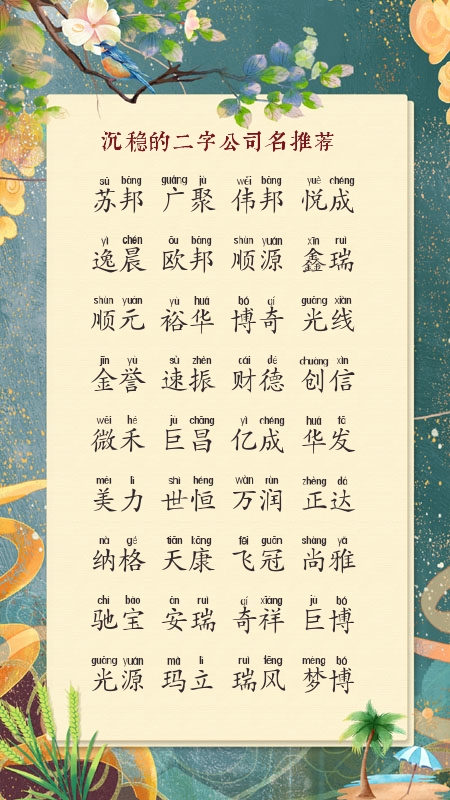 沉稳的二字公司名推荐
sū bāng guǎng jù wěi bāng yuè chéng
苏邦 广聚 伟邦 悦成
yì chén ōu bāng shùn yuán xīn ruì
逸晨 欧邦 顺源 鑫瑞
shùn yuán yù huá bó qí guāng xiàn
顺元 裕华 博奇 光线
jīn yù sù zhèn cái dé chuàng xìn
金誉 速振 财德 创信
wēi hé jù chāng yì chéng huá fā
微禾 巨昌 亿成 华发
měi lì shì héng wàn rùn zhèng dá
美力 世恒 万润 正达
nà gé tiān kāng fēi guān shàng yǎ
纳格 天康 飞冠 尚雅
chí bǎo ān ruì qí xiáng jù bó
驰宝 安瑞 奇祥 巨博
guāng yuán mǎ lì ruì fēng mèng bó
光源 玛立 瑞风 梦博